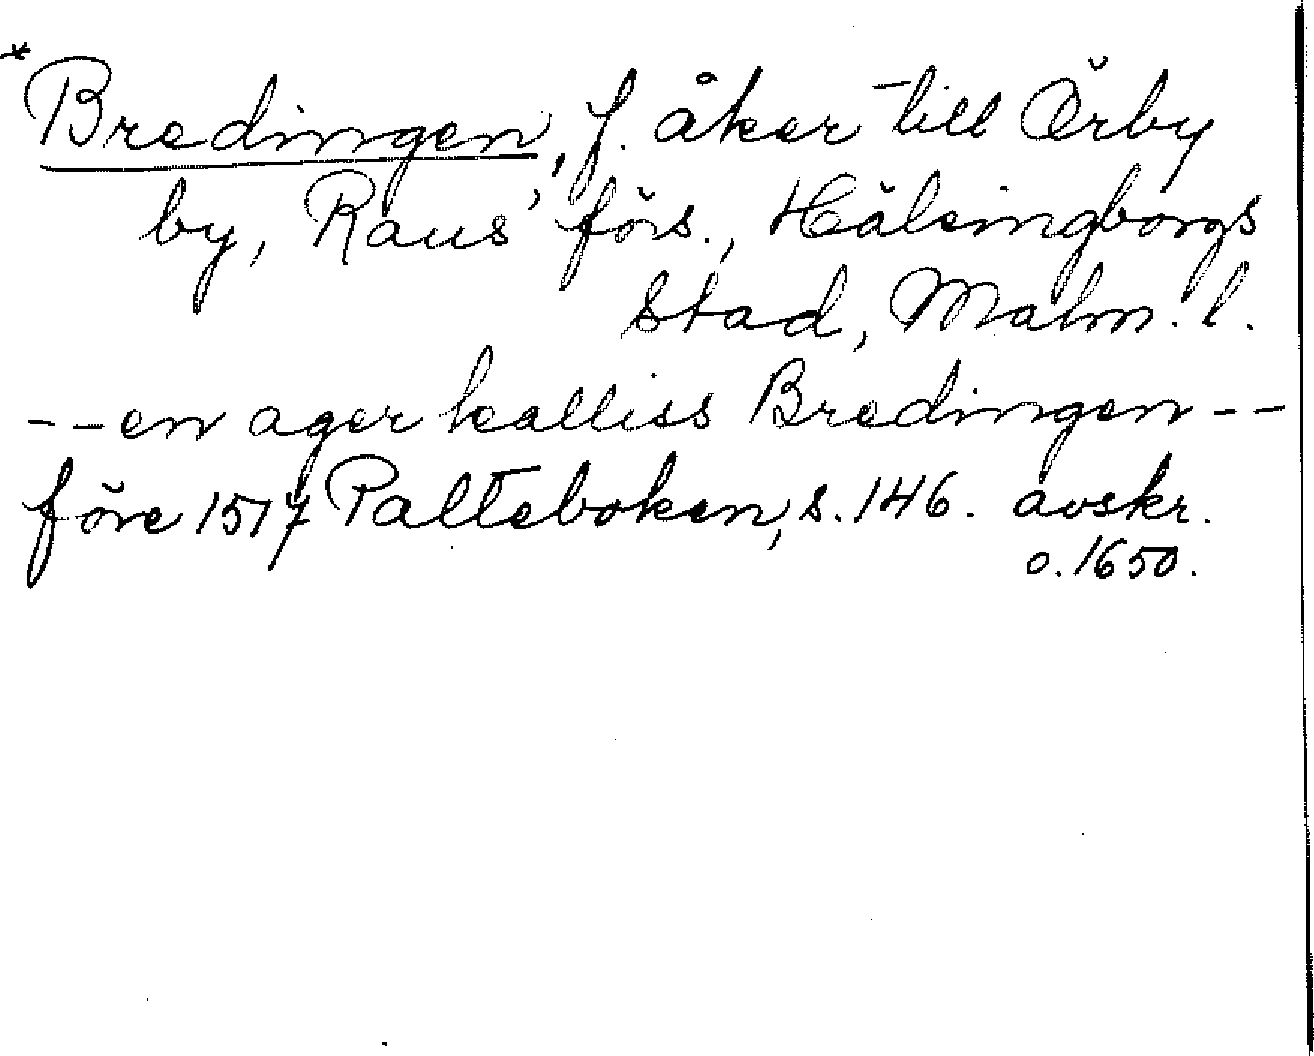 *Bredingen, f. åker till Örby
by, Raus' förs., Hälsingborgs
stad, Malm. l.
--en ager kalliss Bredingen--
före 1517 Palteboken, s. 146. avskr.
o. 1650.